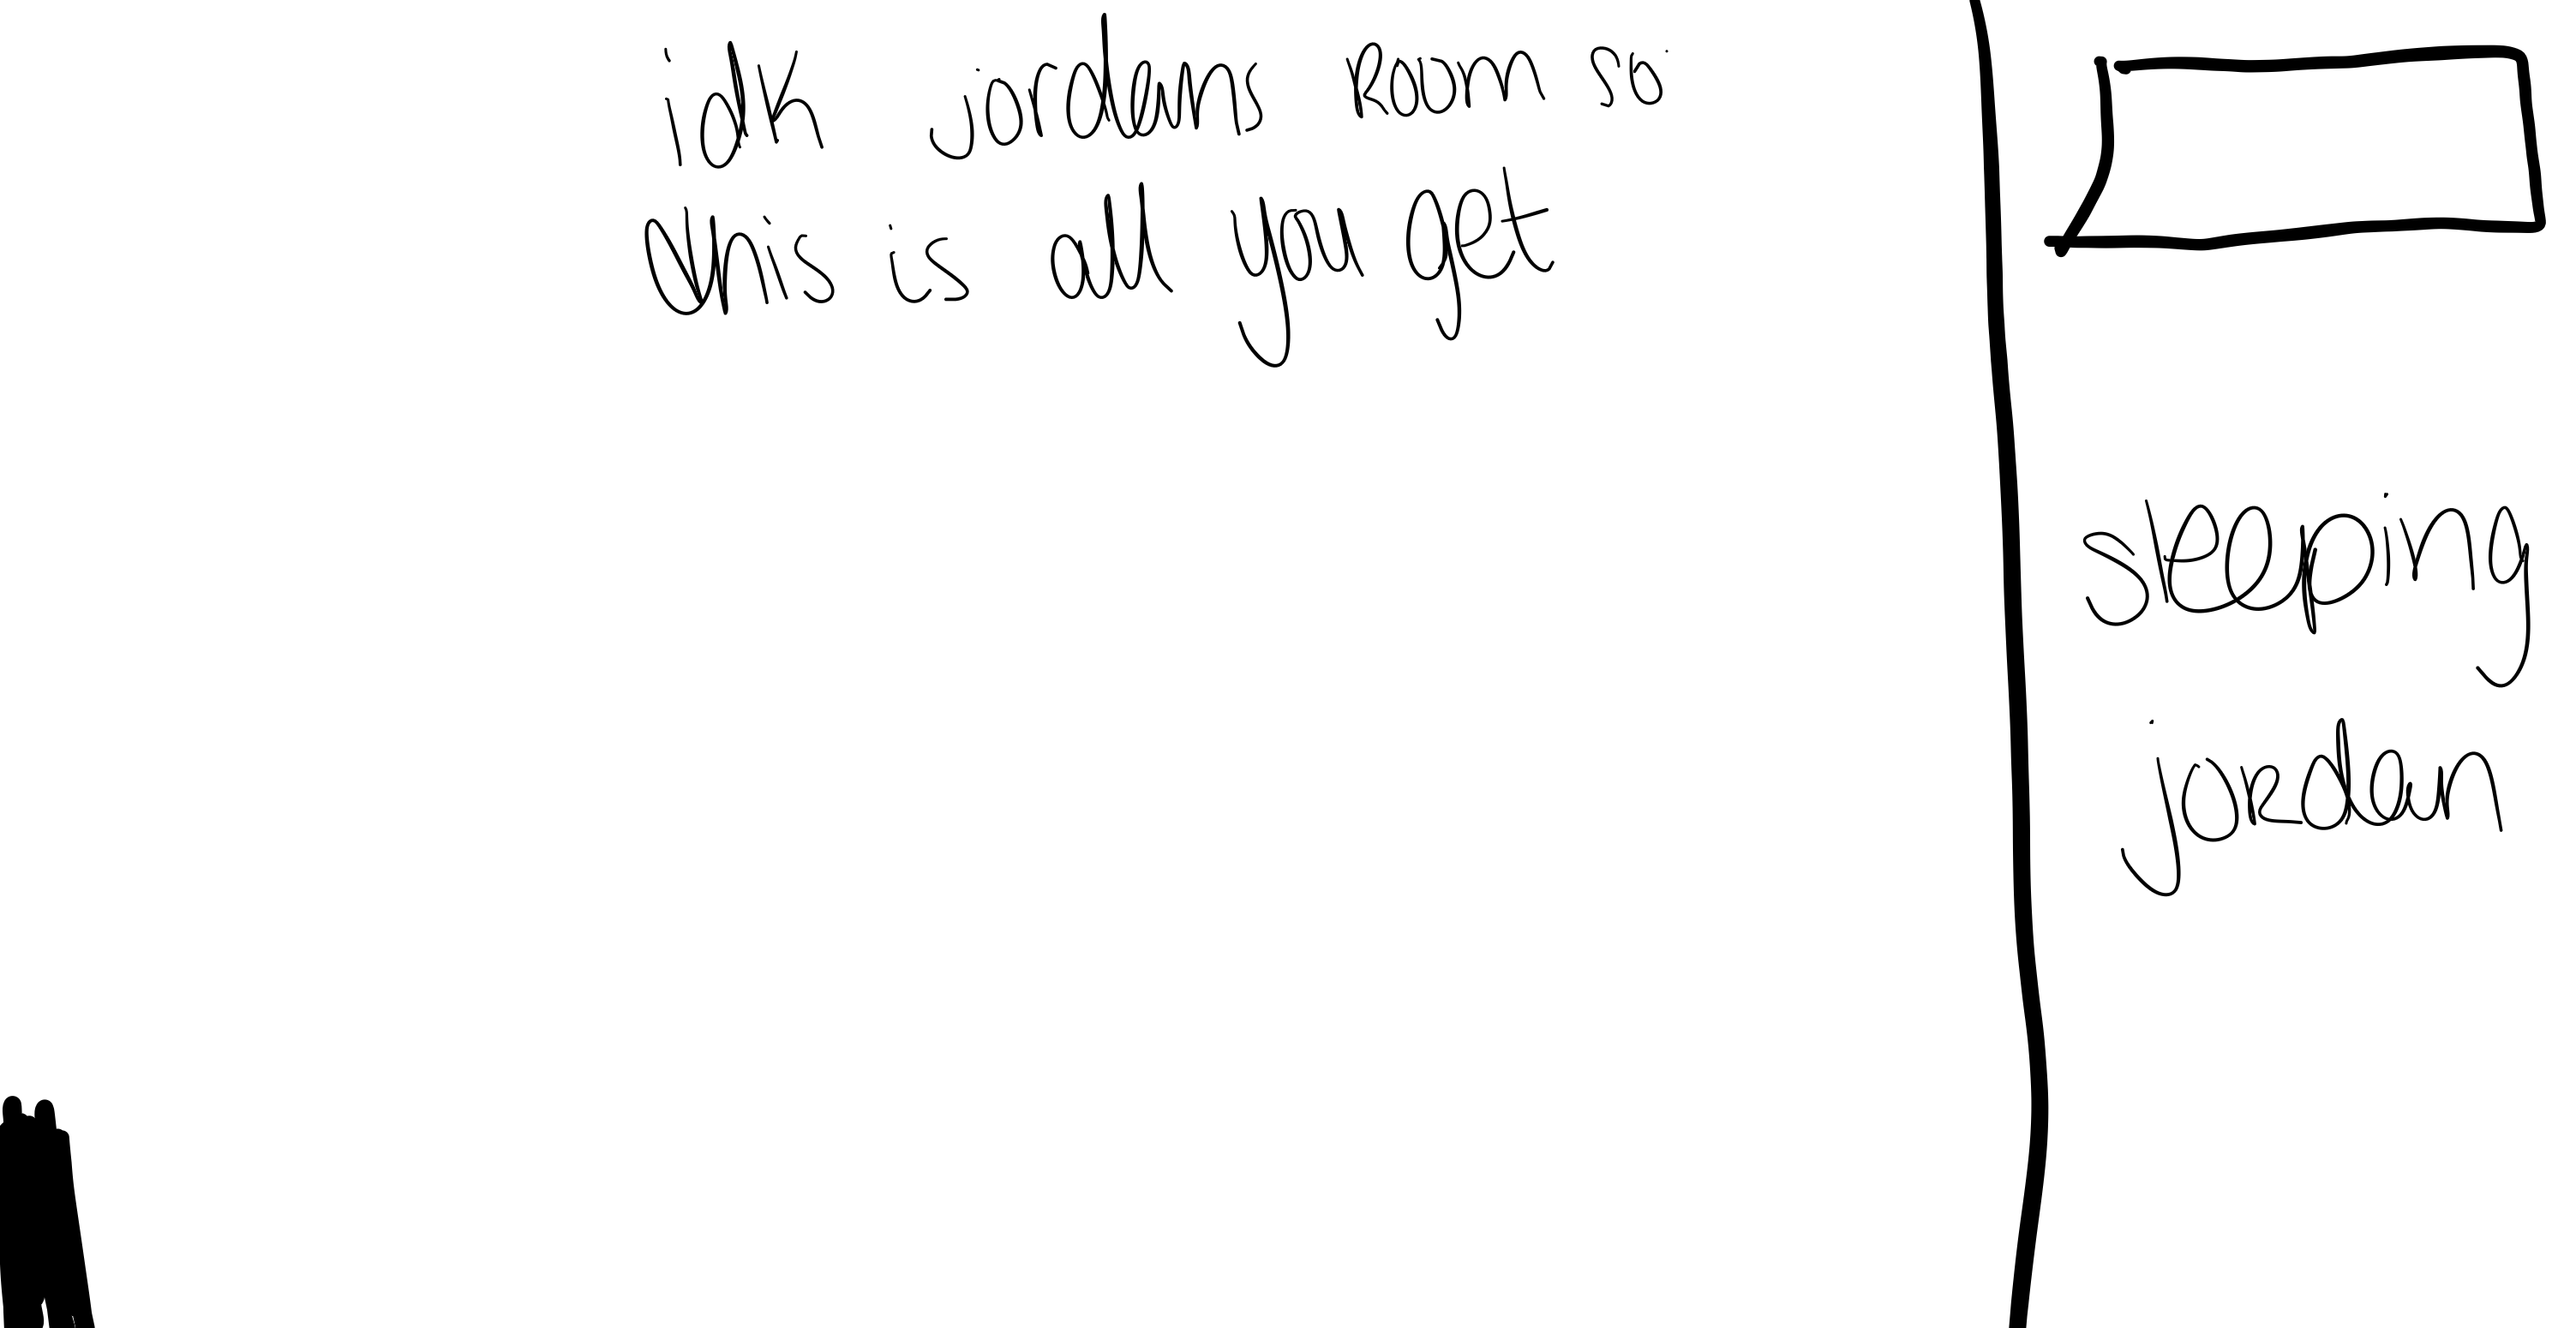 idk jordens room so
this is all you get
sleeping
jorden